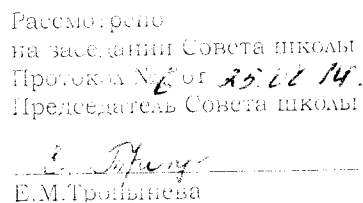 Рассмотрено
на заседании Совета школы
Протокол № 6 от 25.02 14.
Председатель Совета школы
Е.М.Тропынева